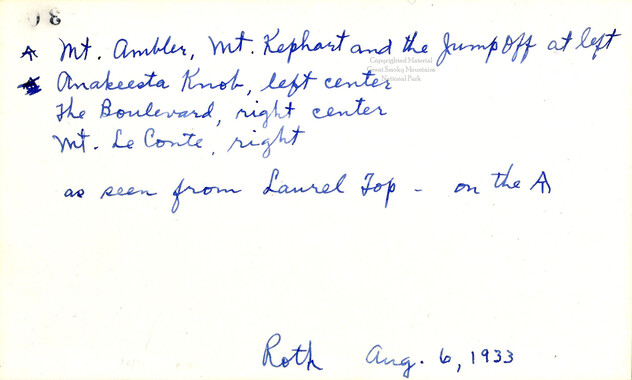 30
Mt. Ambler, Mt. Kephart and the Jump Off at left
Copyrighted Material
Great Smoky Mountains
National Park
Anakeesta Knob, left center
The Boulevard, right center
Mt. Le Conte, right
as seen from Laurel Top - on the
Roth Aug. 6, 1933